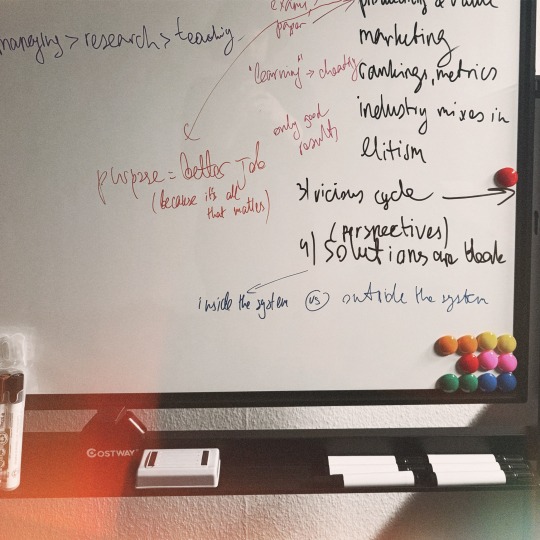 exams,
paper
managing > research > teaching
marketing
"learning" → cheating
rankings, metrics
only good
results
industry mixes in
Elitism
purpose = better Job
(because it's all
that matters)
3) vicious cycle →
(perspectives)
4) Solutions are bleak
inside the system vs outside the system
COSTWAY